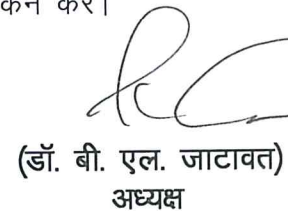 करें।
(डॉ. बी. एल. जाटावत)
अध्यक्ष